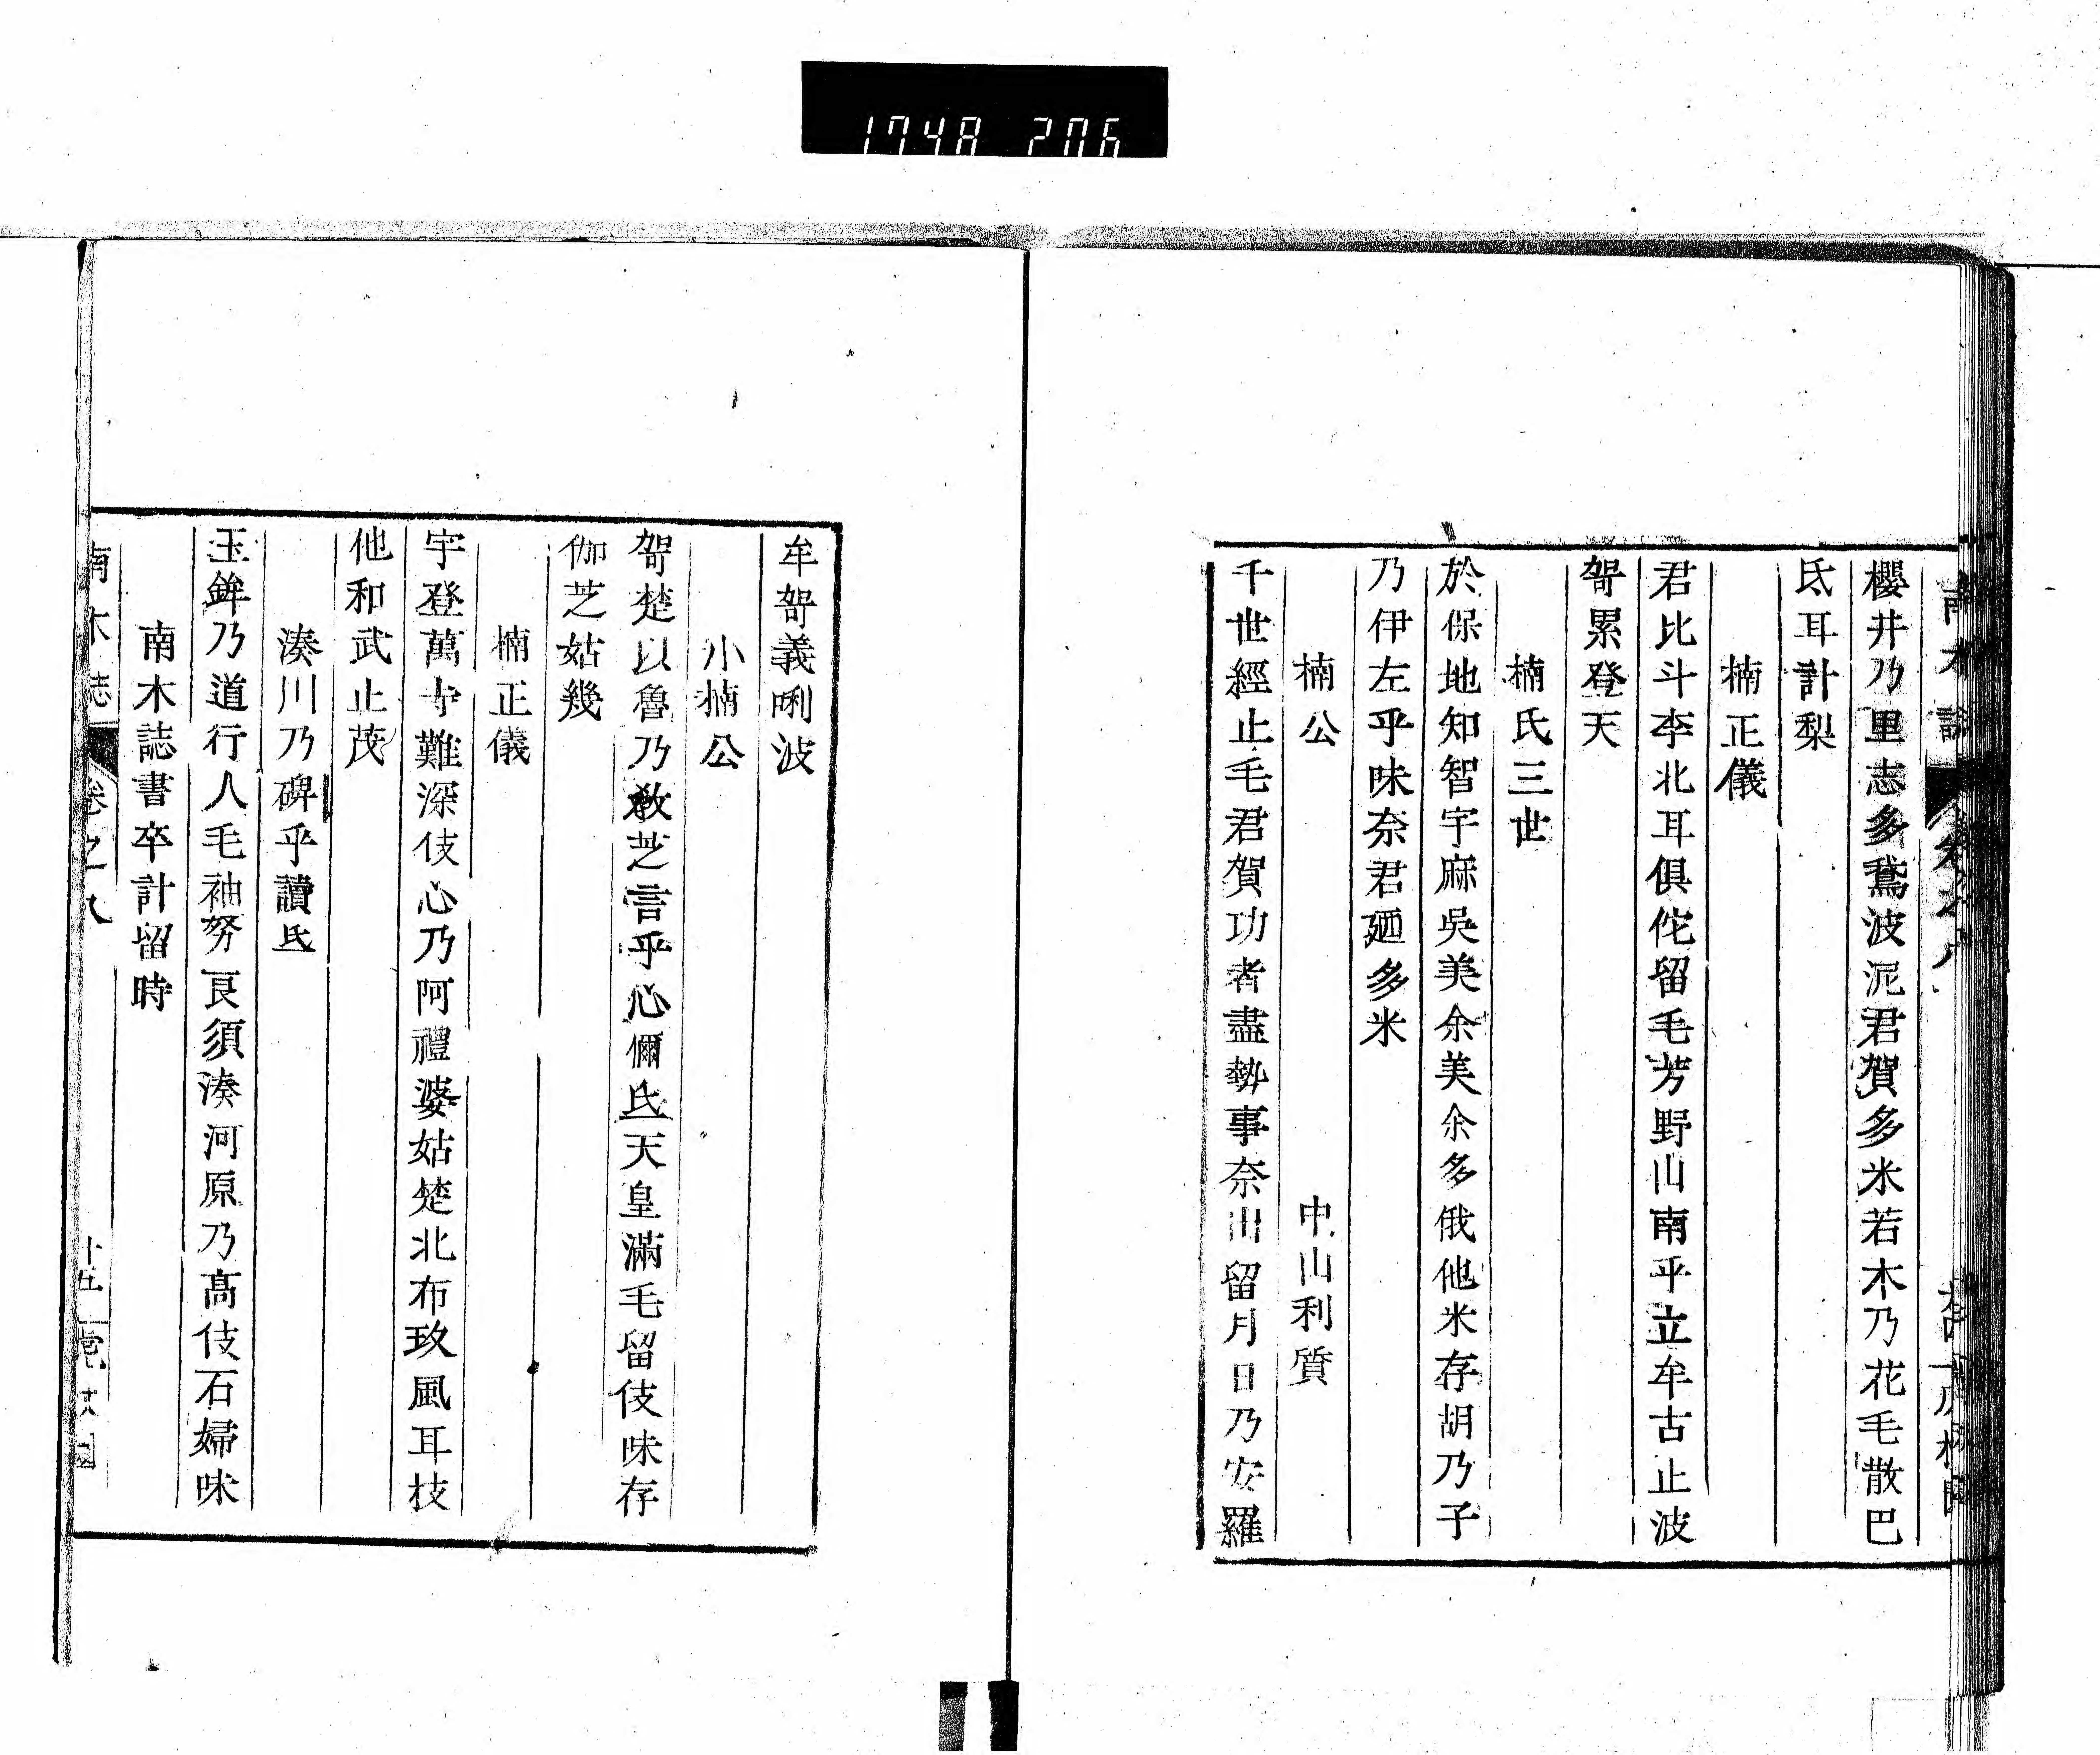 1748 206
櫻井乃里志多鵞波泥君賀多米若木乃花毛散巴
氐耳計梨
楠正儀
君比斗李北耳俱佗留毛芳野山南乎立牟古止波
哿累登天
楠氏三世
於保地知智宇麻吳美余美余多俄他米存胡乃子
乃伊左乎味奈君廼多米
楠公
中山利質
千世經止毛君賀功者盡勢事奈出留月日乃安羅
牟哿義唎波
小楠公
哿楚以魯乃敎芝言乎心儞氐天皇滿毛留伎味存
伽芝姑幾
楠正儀
宇登萬寺難深伎心乃阿禮婆姑楚北布玖風耳枝
他和武止茂
湊川乃碑乎讀氐
玉鉾乃道行人毛袖努良須湊河原乃高伎石婦味
南木誌書卒計留時
南木志
卷之八
十五